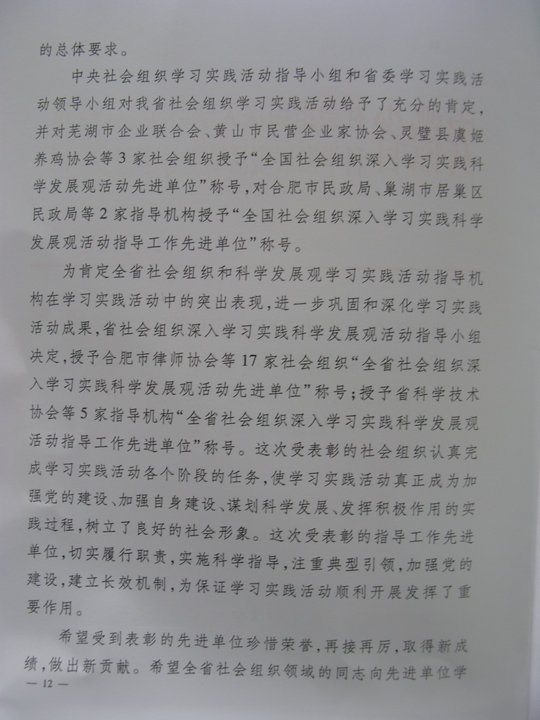 的总体要求。
中央社会组织学习实践活动指导小组和省委学习实践活
动领导小组对我省社会组织学习实践活动给予了充分的肯定,
并对芜湖市企业联合会、黄山市民营企业家协会、灵璧县虞姬
养鸡协会等3家社会组织授予“全国社会组织深入学习实践科
学发展观活动先进单位”称号,对合肥市民政局、巢湖市居巢区
民政局等2家指导机构授予“全国社会组织深入学习实践科学
发展观活动指导工作先进单位”称号。
为肯定全省社会组织和科学发展观学习实践活动指导机
构在学习实践活动中的突出表现,进一步巩固和深化学习实践
活动成果,省社会组织深入学习实践科学发展观活动指导小组
决定,授予合肥市律师协会等17家社会组织“全省社会组织深
入学习实践科学发展观活动先进单位”称号;授予省科学技术
协会等5家指导机构“全省社会组织深入学习实践科学发展观
活动指导工作先进单位”称号。这次受表彰的社会组织认真完
成学习实践活动各个阶段的任务,使学习实践活动真正成为加
强党的建设、加强自身建设、谋划科学发展、发挥积极作用的实
践过程,树立了良好的社会形象。这次受表彰的指导工作先进
单位,切实履行职责,实施科学指导,注重典型引领,加强党的
建设,建立长效机制,为保证学习实践活动顺利开展发挥了重
要作用。
希望受到表彰的先进单位珍惜荣誉,再接再厉,取得新成
绩,做出新贡献。希望全省社会组织领域的同志向先进单位学
— 12 —